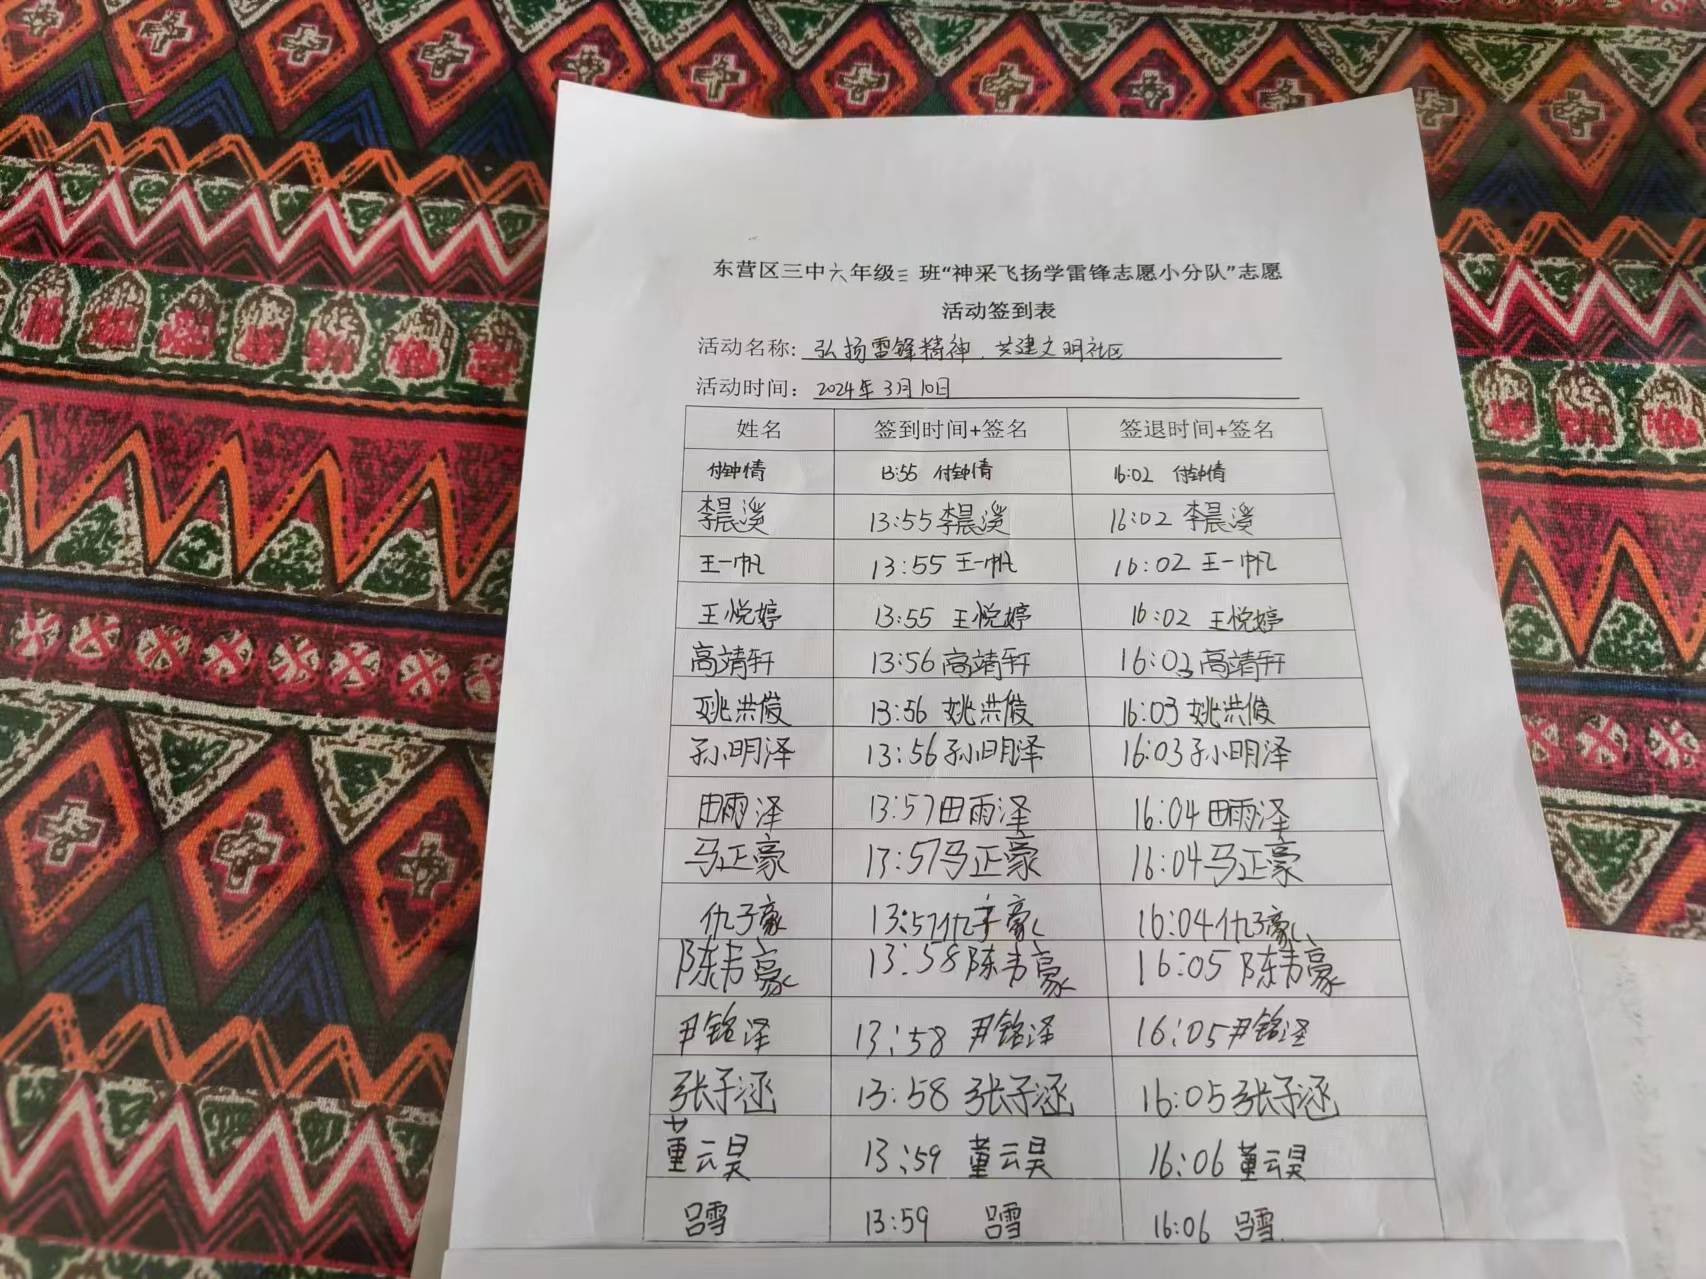 东营区三中六年级三 班“神采飞扬学雷锋志愿小分队”志愿
活动签到表
活动名称: 弘扬雷锋精神，共建文明社区
活动时间: 2024年3月10日
姓名 签到时间+签名 签退时间+签名
付钟倩 13:55 付钟倩 16:02 付钟倩
李晨溪 13:55 李晨溪 16:02 李晨溪
王一帆 13:55 王一帆 16:02 王一帆
王悦婷 13:55 王悦婷 16:02 王悦婷
高靖轩 13:56 高靖轩 16:03 高靖轩
姚洪俊 13:56 姚洪俊 16:03 姚洪俊
孙明泽 13:56 孙明泽 16:03 孙明泽
田雨泽 13:57 田雨泽 16:04 田雨泽
马正豪 13:57 马正豪 16:04 马正豪
仇子豪 13:57 仇子豪 16:04 仇子豪
陈韦豪 13:58 陈韦豪 16:05 陈韦豪
尹铭泽 13:58 尹铭泽 16:05 尹铭泽
张子涵 13:58 张子涵 16:05 张子涵
董云昊 13:59 董云昊 16:06 董云昊
吕雪 13:59 吕雪 16:06 吕雪